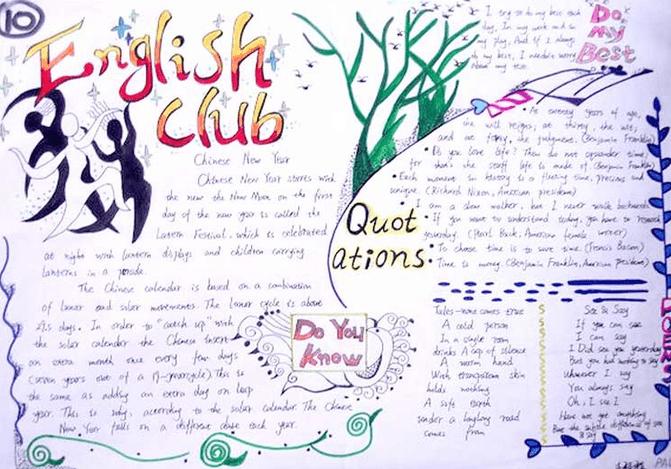 10
English
Club
Chinese New Year
Chinese New Year starts with
the new the New Moon on the first
day of the new year is called the
Latern Festival, which is celebrated
at night with lantern displays and children carrying
lanterns in a parade.
The Chinese calendar is based on a combination
of lunar and solar movements. The lunar cycle is about
29.5 days. In order to "catch up" with
the solar calendar the Chinese insert
an extra month once every few days
(seven years out of a 19-yearcycle). This is
the same as adding an extra day on leap
year. This is why, according to the solar calendar. The Chinese
New Year falls on a different date each year.
Do You
Know
Do
My
Best
I try to do my best each
day. In my work and in
my play, And if I always
do my best, I needn't worry
About my test.
Quot
ations:
At twenty years of age,
the will reigns; at thirty, the wit;
and at forty, the judgment. (Benjamin Franklin)
Do you love life? Then do not squander time,
for that's the stuff life is made of. (Benjamin Franklin)
Each moment in history is a fleeting time, precious and
unique. (Richard Nixon, American president)
I am a slow walker, but I never walk backwards.
If you want to understand today, you have to research
yesterday. (Pearl Buck, American female writer)
To choose time is to save time. (Francis Bacon)
Time is money. (Benjamin Franklin, American president)
comes true
A cold person
In a single room
drinks A cup of silence
A warm hand
With transparent skin
holds
A safe earth
under a laughing road
comes from
See & Say
If you can see
I can say
I Did see you yesterday
But you had nothing to say
Whenever I say
You always say
Oh, I see I
Have not got anything
But the subtle difference of see
& say